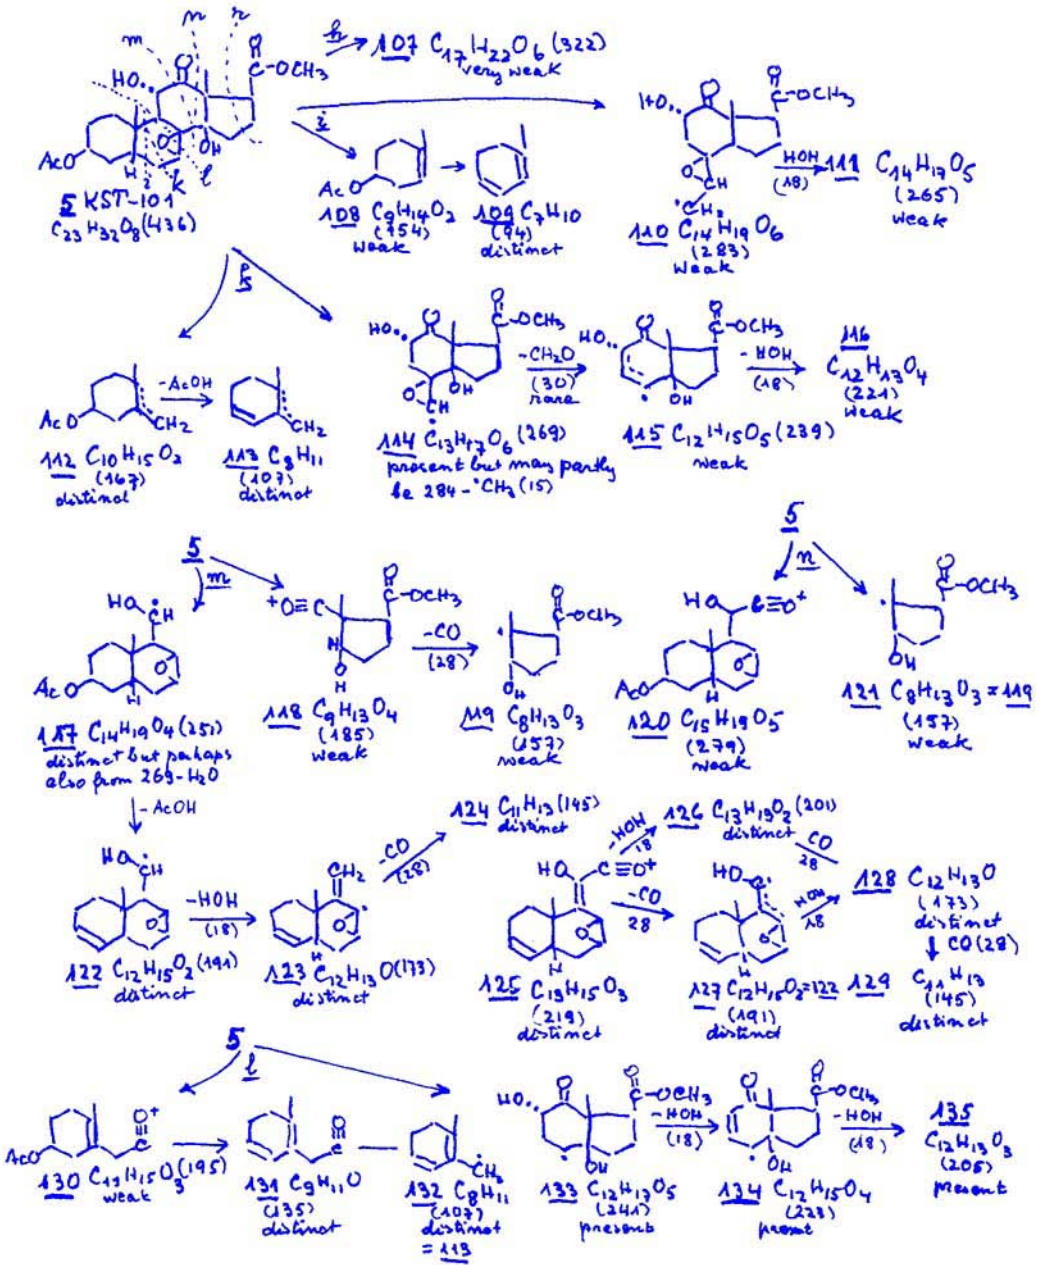 m n r
HO
O
C-OCH3
AcO
H
O
OH
i k l
5 KST-101
C23 H32 O8 (436)
h
107 C17 H22 O6 (322)
very weak
i
AcO
108 C9H14O2
(154)
weak
109 C7H10
(94)
distinct
HO
C-OCH3
O
CH
CH2
110 C14 H19 O6
(283)
weak
HOH
(18)
111 C14H17O5
(265)
weak
k
AcO
CH2
112 C10H15O2
(167)
distinct
-AcOH
CH2
113 C8H11
(107)
distinct
HO
C-OCH3
OH
CH
114 C13H17O6 (269)
present but may partly
be 284 - °CH3 (15)
-CH2O
(30)
rare
HO
C-OCH3
OH
115 C12H15O5 (239)
weak
-HOH
(18)
116
C12H13O4
(221)
weak
5
m
HO CH
AcO
H
117 C14H19O4 (251)
distinct but perhaps
also from 269-H2O
-AcOH
+O≡C
C-OCH3
118 C9H13O4
(185)
weak
-CO
(28)
C-OCH3
OH
119 C8H13O3
(157)
weak
5
n
HO C≡O+
AcO
H
120 C15H19O5
(279)
weak
C-OCH3
OH
121 C8H13O3 = 119
(157)
weak
HO CH
122 C12H15O2 (191)
distinct
-HOH
(18)
CH2
H
123 C12H13O (173)
distinct
-CO
(28)
124 C11H13 (145)
distinct
HO C≡O+
H
125 C13H15O3
(219)
distinct
-HOH
18
126 C13H13O2 (201)
distinct
CO
28
-CO
28
HO C
H
127 C12H15O2=122
(191)
distinct
HOH
18
128 C12H13O
(173)
distinct
CO (28)
129 C11H13
(145)
distinct
5
l
AcO
O+
C
130 C11H15O3 (195)
weak
O
C
131 C9H11O
(135)
distinct
CH2
132 C8H11
(107)
distinct
= 113
HO
C-OCH3
OH
133 C12H17O5
(241)
present
-HOH
(18)
C-OCH3
OH
134 C12H15O4
(223)
present
-HOH
(18)
135
C12H13O3
(205)
present